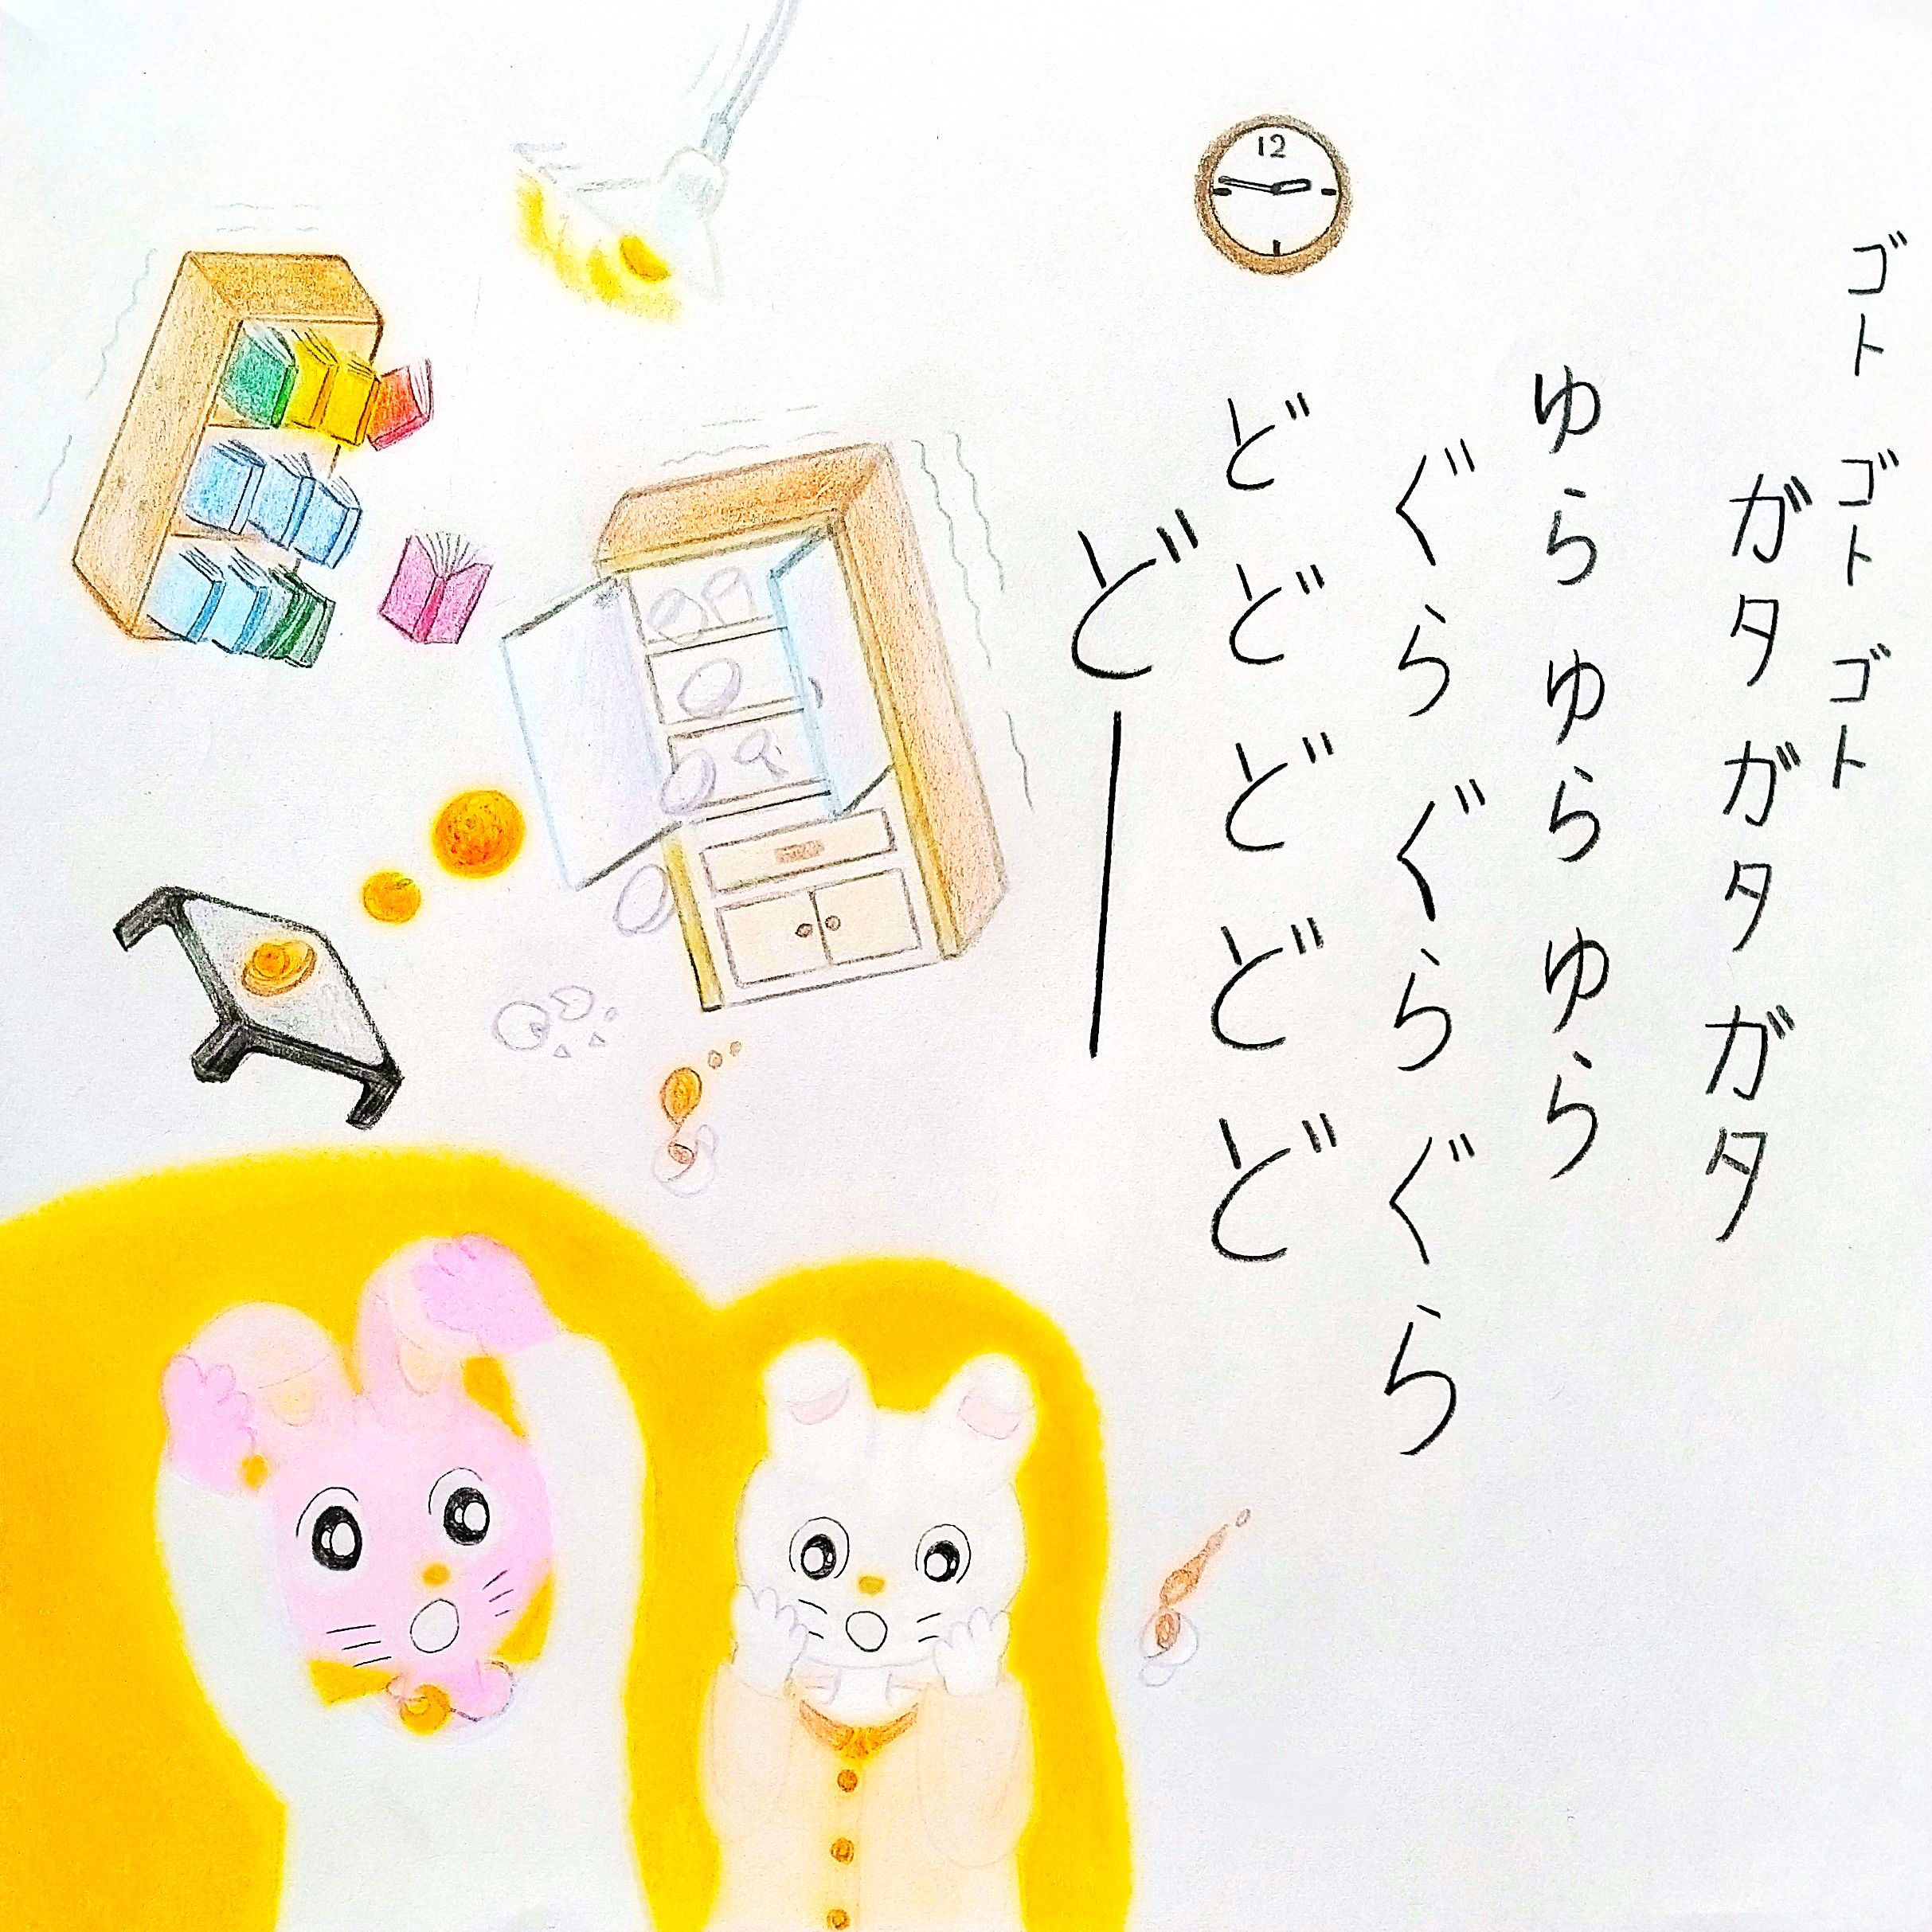 ゴト ゴト ゴト
ガタ ガタ ガタ
ゆら ゆら ゆら
ぐら ぐら ぐら
どどどどど
ど―
12